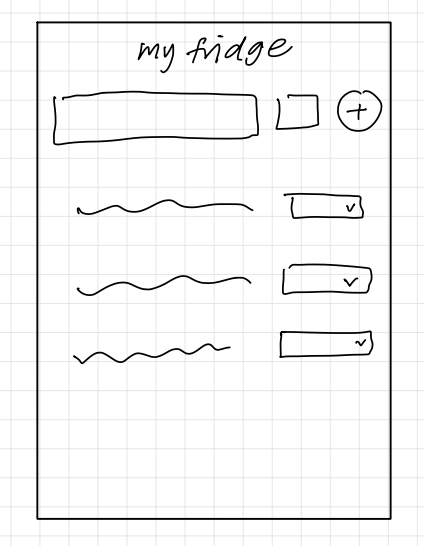 my fridge